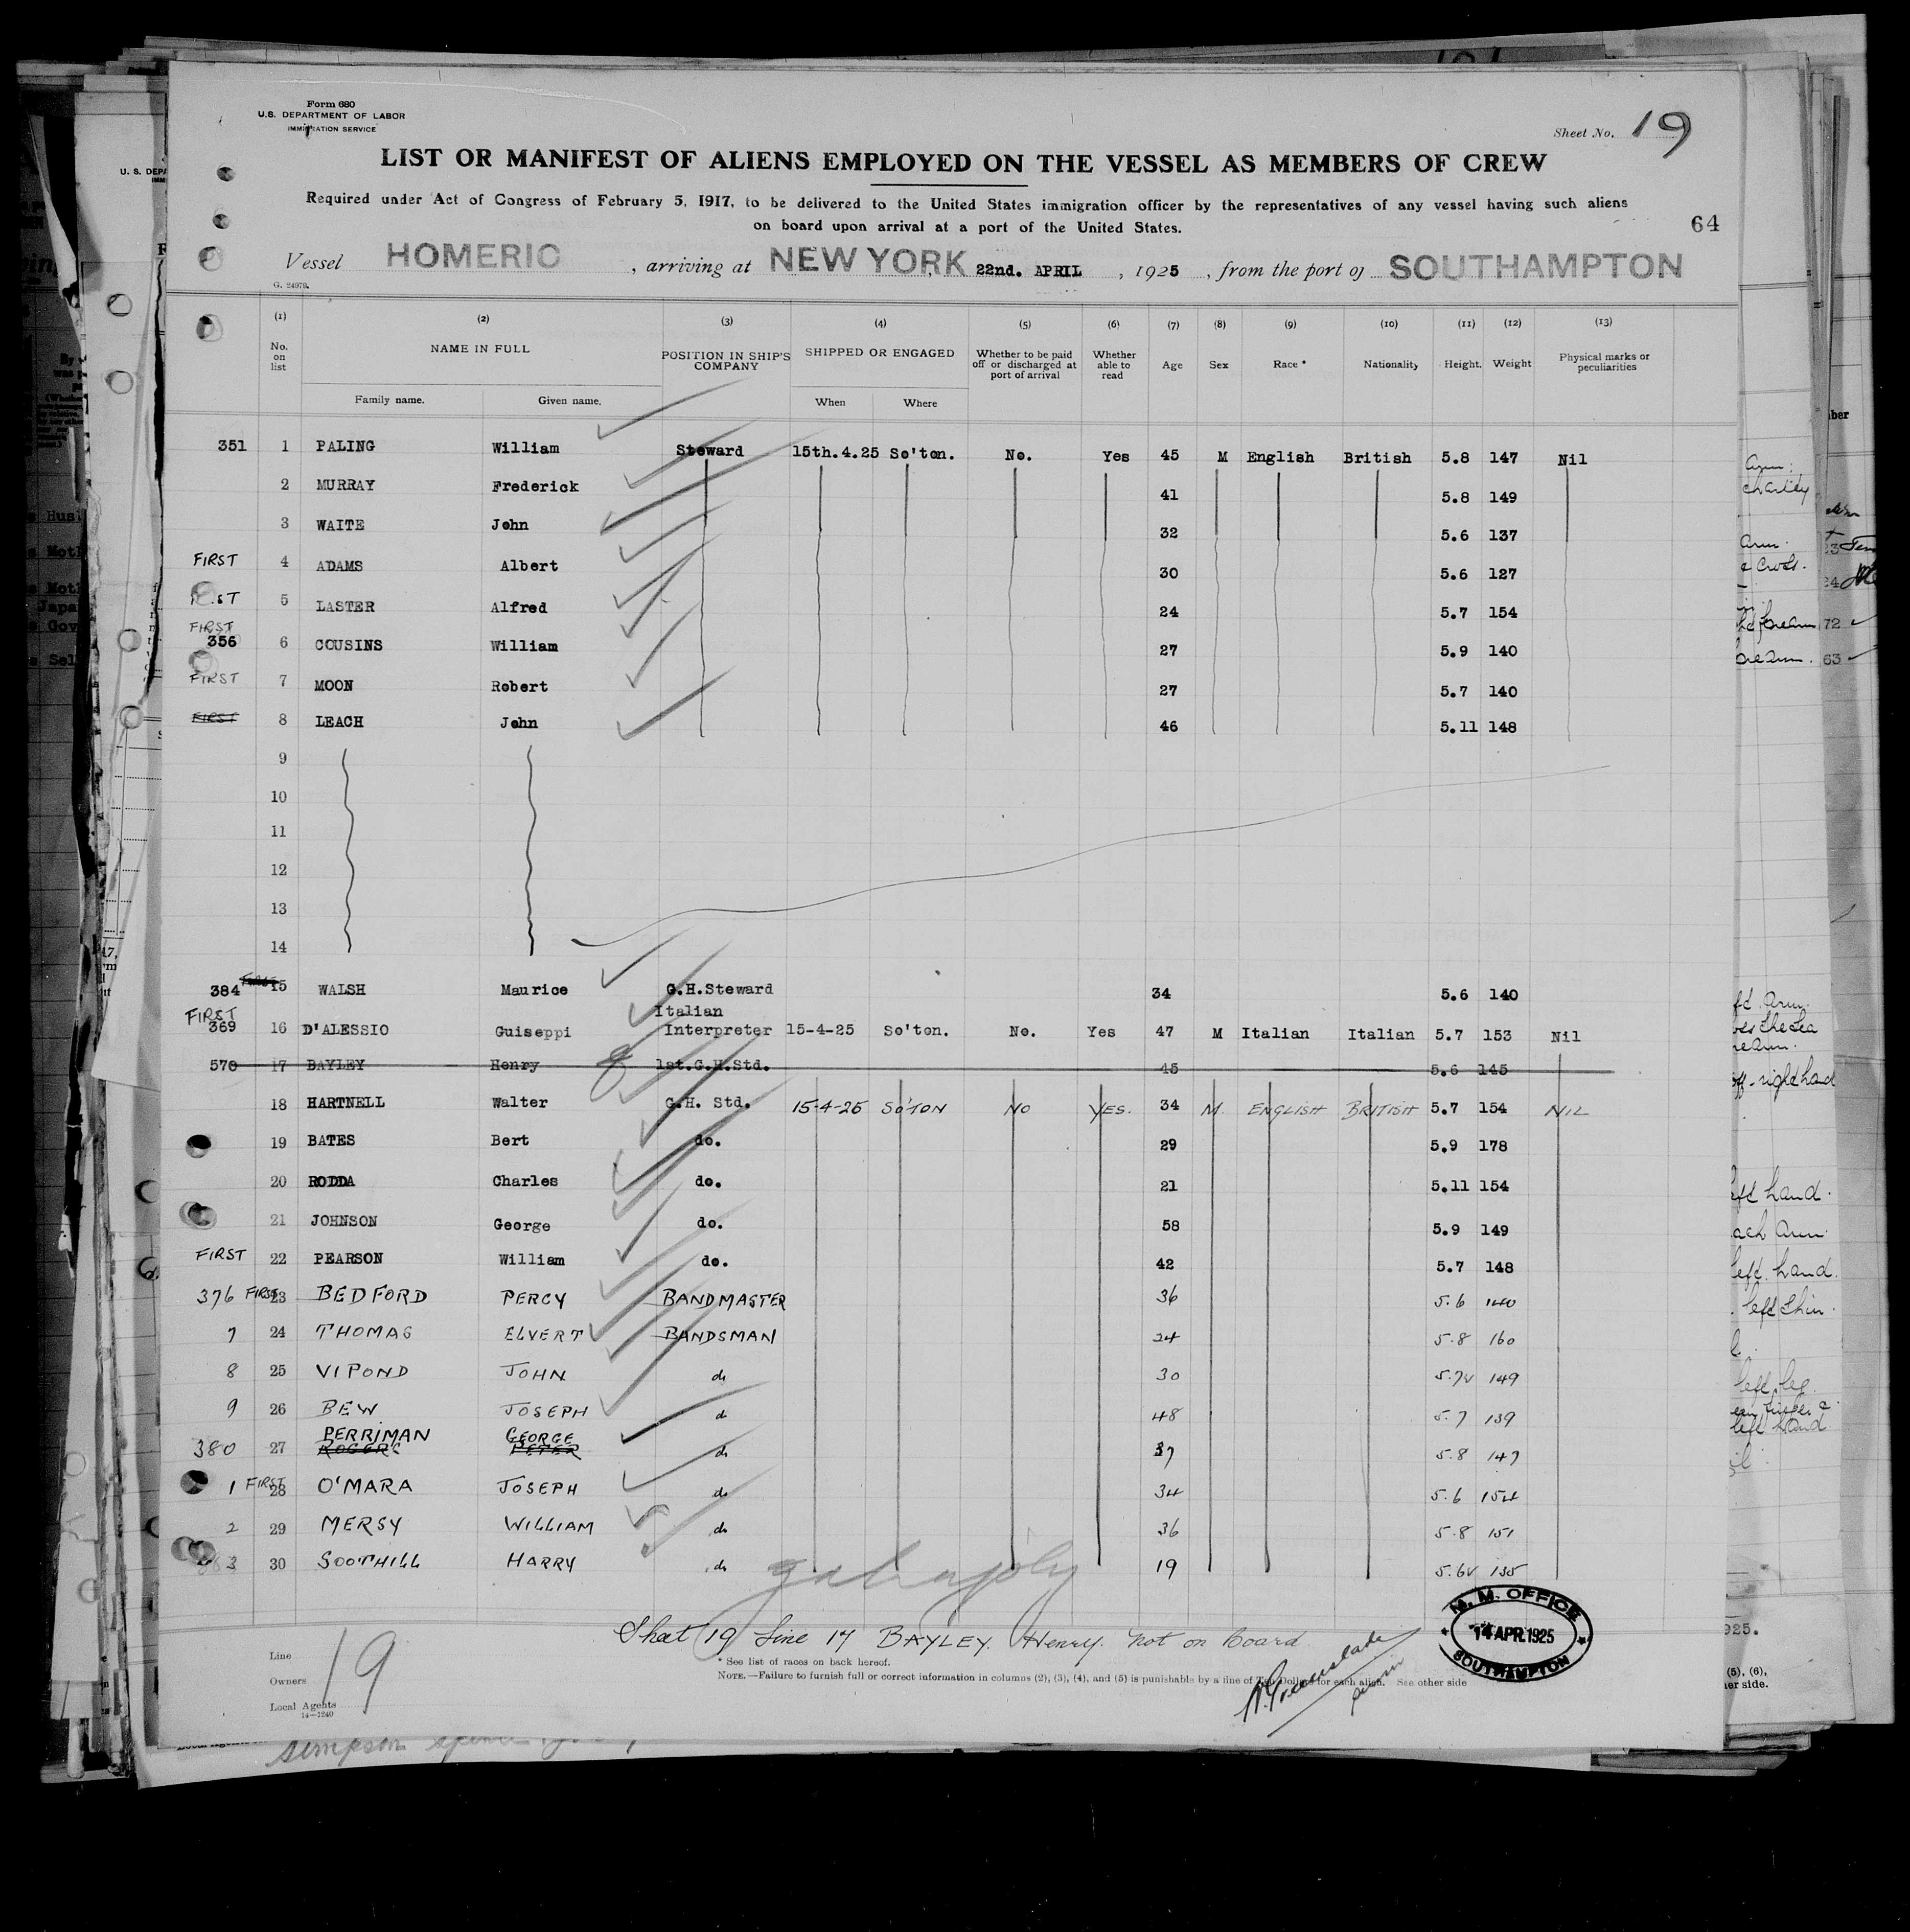 Form 680
U.S. DEPARTMENT OF LABOR
IMMIGRATION SERVICE
Sheet No. 19
LIST OR MANIFEST OF ALIENS EMPLOYED ON THE VESSEL AS MEMBERS OF CREW
Required under Act of Congress of February 5, 1917, to be delivered to the United States immigration officer by the representatives of any vessel having such aliens
on board upon arrival at a port of the United States.
64
Vessel HOMERIC , arriving at NEW YORK 22nd. APRIL , 1925 , from the port of SOUTHAMPTON
G. 24979.
(1) (2) (3) (4) (5) (6) (7) (8) (9) (10) (11) (12) (13)
No. on list NAME IN FULL POSITION IN SHIP'S COMPANY SHIPPED OR ENGAGED Whether to be paid off or discharged at port of arrival Whether able to read Age Sex Race * Nationality Height. Weight Physical marks or peculiarities
Family name. Given name. When Where
351 1 PALING William Steward 15th.4.25 So'ton. No. Yes 45 M English British 5.8 147 Nil
2 MURRAY Frederick 41 5.8 149
3 WAITE John 32 5.6 137
FIRST 4 ADAMS Albert 30 5.6 127
5 LASTER Alfred 24 5.7 154
FIRST
356 6 COUSINS William 27 5.9 140
FIRST 7 MOON Robert 27 5.7 140
FIRST 8 LEACH John 46 5.11 148
9
10
11
12
13
14
384 FIRST 15 WALSH Maurice G.H.Steward 34 5.6 140
FIRST Italian
369 16 D'ALESSIO Guiseppi Interpreter 15-4-25 So'ton. No. Yes 47 M Italian Italian 5.7 153 Nil
570 17 BAYLEY Henry 1st.G.H.Std. 45 5.6 145
18 HARTNELL Walter G.H. Std. 15-4-25 SO'TON NO YES. 34 M. ENGLISH BRITISH 5.7 154 NIL
19 BATES Bert do. 29 5.9 178
20 RODDA Charles do. 21 5.11 154
21 JOHNSON George do. 58 5.9 149
FIRST 22 PEARSON William do. 42 5.7 148
376 FIRST 23 BEDFORD PERCY BANDMASTER 36 5.6 140
7 24 THOMAS ELVERT BANDSMAN 24 5.8 160
8 25 VIPOND JOHN do 30 5.7½ 149
9 26 BEW JOSEPH do 48 5.7 139
PERRIMAN GEORGE
380 27 ROGERS PETER do 37 5.8 147
1 FIRST 28 O'MARA JOSEPH do 34 5.6 154
2 29 MERSY WILLIAM do 36 5.8 151
383 30 SOOTHILL HARRY do 19 5.6½ 135
Sheet 19 Line 17 BAYLEY. Henry. Not on board
M. M. OFFICE
14 APR. 1925
SOUTHAMPTON
Line
Owners
Local Agents
14—1240
19
* See list of races on back hereof.
NOTE.—Failure to furnish full or correct information in columns (2), (3), (4), and (5) is punishable by a fine of Ten Dollars for each alien. See other side